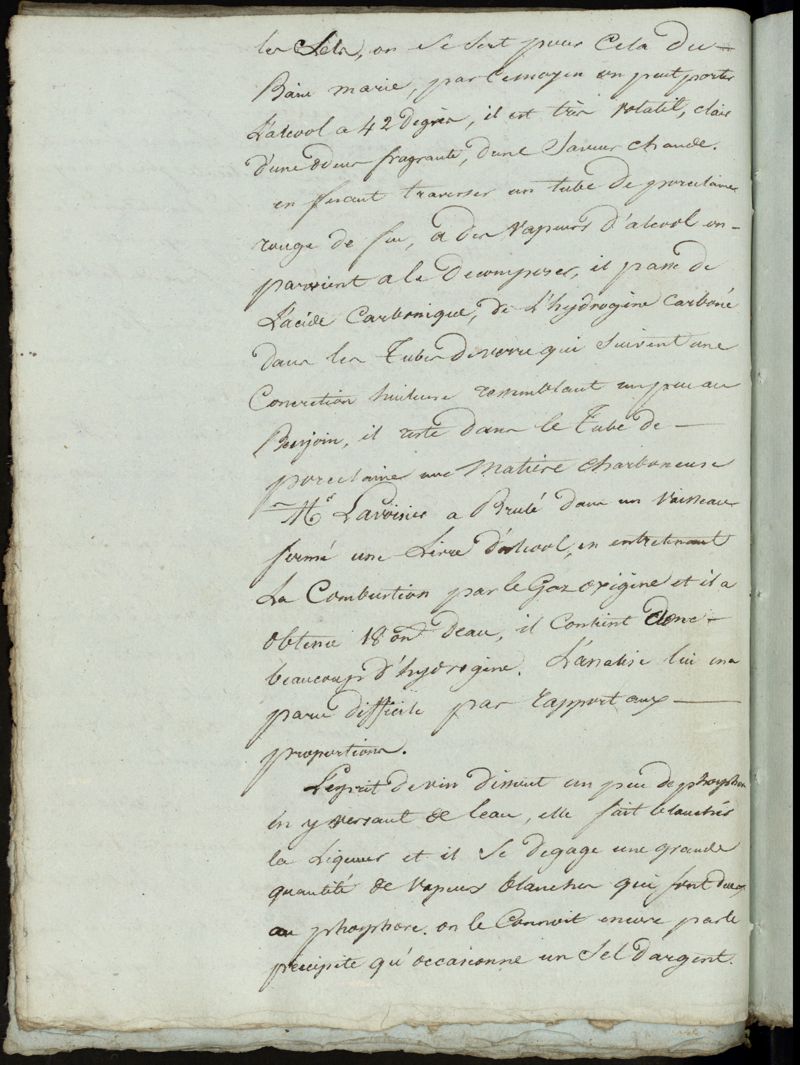 les Sels, on se sert pour Cela du
Bain marie, par Ce moyen on peut porter
L'alcool a 42 degrés, il est très volatil, clair
d'une odeur fragrante, d'une Saveur chaude.
en fesant traverser un tube de porcelaine
rouge de feu, a des vapeurs d'alcool on
parvient a le Decomposer, il passe de
L'acide Carbonique, de L'hydrogène Carboné
dans les Tubes de verre qui suivent une
Concretion huileuse ressemblant un peu au
Benjoin, il reste dans le Tube de
porcelaine une Matière charboneuse
Mr. Lavoisier a Brulé dans un vaisseau
fermé une Livre d'alcool, en entretenant
La Combustion par le Gaz oxigène et il a
obtenu 18 onc. d'eau, il Contient donc
beaucoup d'hydrogène. L'analise lui en a
paru difficile par rapport aux
proportions.
L'esprit de vin dissout un peu de phosphore
en y versant de l'eau, elle fait blanchir
la Liqueur et il se degage une grande
quantité de vapeurs blanches qui sont dues
au phosphore. on le Connoit encore par le
précipité qu'occasionne un Sel d'argent.